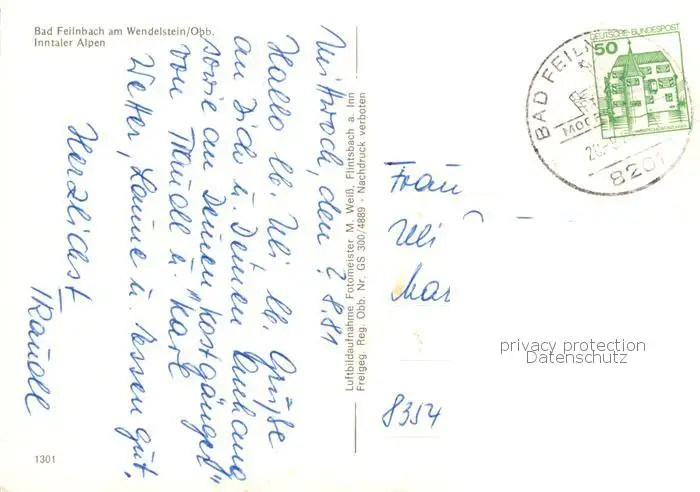 Bad Feilnbach am Wendelstein/Obb.
Inntaler Alpen
Mittwoch, den ? 8.81
Hallo lb. Uli lb. Grüße
an Dich u. Deinen Anhang
sowie an Deinen "Kostgänger"
von Traudl u. Karl
Wetter, Laune u. Essen gut.
Herzlichst
Traudl
1301
Luftbildaufnahme Fotomeister M. Weiß, Flintsbach a. Inn
Freigeg. Reg. Obb. Nr. GS 300/4889 · Nachdruck verboten
BAD FEILN
MOOR
8201
DEUTSCHE BUNDESPOST
50
Frau
Uli
Mar
8354
privacy protection
Datenschutz